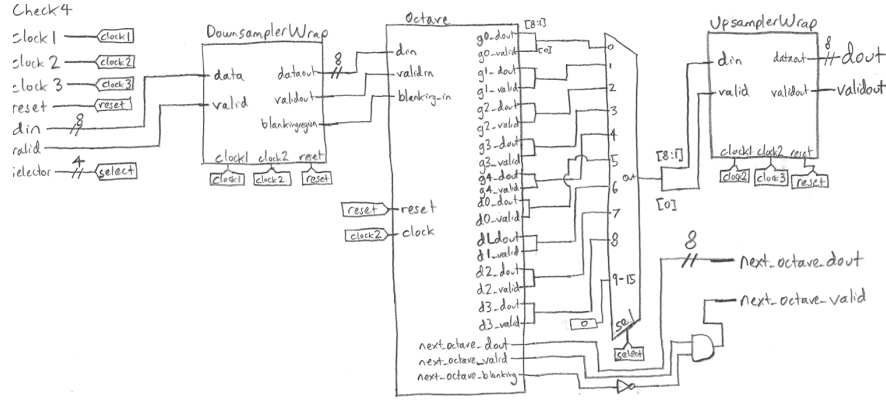 Check4
clock1
clock1
clock2
clock2
clock3
clock3
reset
reset
din
8
valid
selector
4
select
DownsamplerWrap
data
valid
dataout
8
validout
blankingregion
clock1 clock2 reset
clock1
clock2
reset
Octave
din
validin
blanking_in
reset
reset
clock2
clock
g0_dout
g0_valid
g1_dout
g1_valid
g2_dout
g2_valid
g3_dout
g3_valid
g4_dout
g4_valid
d0_dout
d0_valid
d1_dout
d1_valid
d2_dout
d2_valid
d3_dout
d3_valid
next_octave_dout
next_octave_valid
next_octave_blanking
[8:1]
[0]
0
1
2
3
4
5
6
7
8
9-15
out
0
sel
select
[8:1]
[0]
UpsamplerWrap
din
valid
dataout
8
dout
validout
validout
clock1 clock2 reset
clock2
clock3
reset
8
next_octave_dout
next_octave_valid